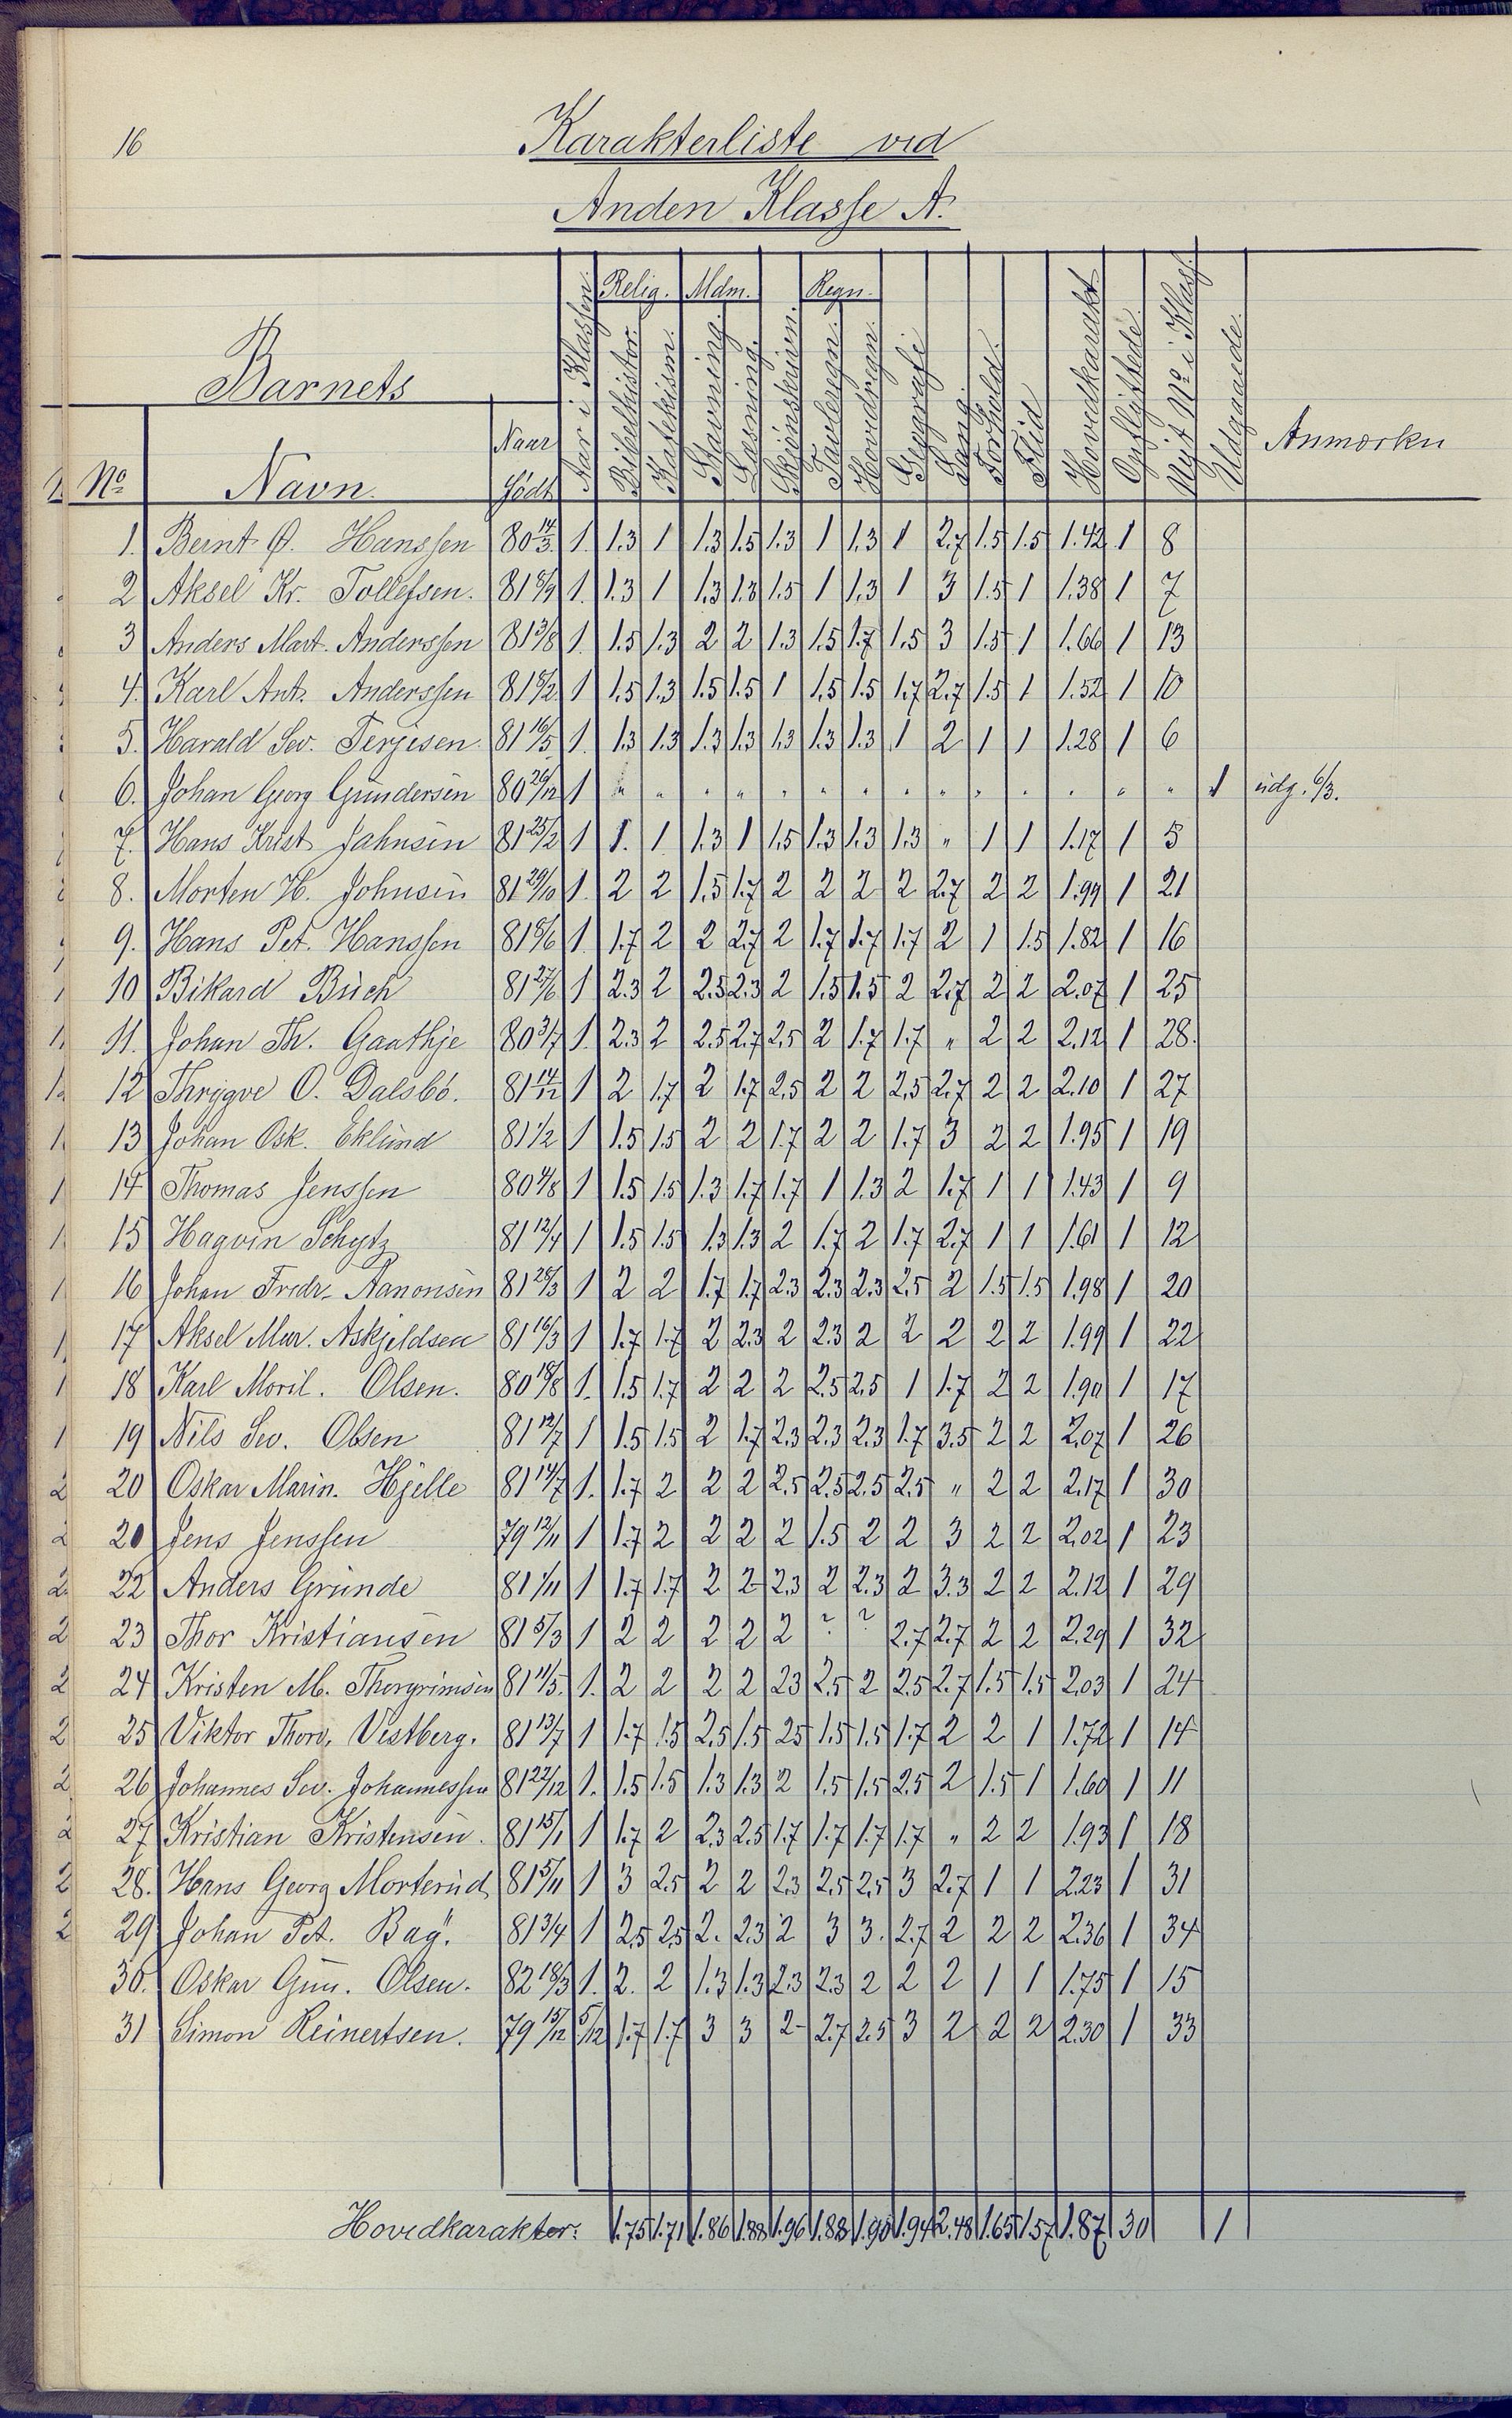 16
Karakterliste vid
Anden Klasse A.
Barnets
Relig. Mdm. Regn.
No Navn. Naar født Aar i Klassen. Bibelhistor. Katekism. Stavning. Læsning. Skjønskriven. Tavleregn. Hovedregn. Geografi Sang. Forhold. Flid Hovedkarakt. Opflyttede. Nyt No i Klass. Udgaaede. Anmærkn
1. Bernt O. Hanssen 80 14/3. 1. 1.3 1 1.3 1.5 1.3 1 1.3 1 2.7 1.5 1.5 1.42 1 8
2 Aksel Kr. Tollefsen. 81 8/9 1. 1.3 1 1.3 1.3 1.5 1 1.3 1 3 1.5 1 1.38 1 7
3 Anders Mart. Anderssen 81 3/8 1. 1.5 1.3 2 2 1.3 1.5 1.7 1.5 3 1.5 1 1.66 1 13
4. Karl Ant. Anderssen 81 8/2 1 1.5 1.3 1.5 1.5 1 1.5 1.5 1.7 2.7 1.5 1 1.52 1 10
5. Harald Sev. Terjesen 81 16/5 1. 1.3 1.3 1.3 1.3 1.3 1.3 1.3 1 2 1 1 1.28 1 6
6. Johan Georg Gundersen 80 26/12 1 " " " " " " " " " " " " " " 1 udg. 6/3.
7. Hans Krist. Jahnsen 81 25/2 1 1. 1 1.3 1 1.5 1.3 1.3 1.3 " 1 1 1.17 1 5
8. Morten H. Johnsen 81 29/10 1. 2 2 1.5 1.7 2 2 2 2 2.7 2 2 1.99 1 21
9. Hans Pet. Hanssen 81 8/6 1. 1.7 2 2 2.7 2 1.7 1.7 1.7 2 1 1.5 1.82 1 16
10 Bikard Buch 81 27/6 1 2.3 2 2.5 2.3 2 1.5 1.5 2 2.7 2 2 2.07 1 25
11. Johan Th. Gaathje 80 3/7 1. 2.3 2 2.5 2.7 2.5 2 1.7 1.7 " 2 2 2.12 1 28.
12 Thrygve O. Dalsbö. 81 14/12 1 2 1.7 2 1.7 2.5 2 2 2.5 2.7 2 2 2.10 1 27
13 Johan Osk. Eklund 81 1/2 1 1.5 1.5 2 2 1.7 2 2 1.7 3 2 2 1.95 1 19
14 Thomas Jenssen 80 4/8 1 1.5 1.5 1.3 1.7 1.7 1 1.3 2 1.7 1 1 1.43 1 9
15 Hagvin Schytz 81 12/4 1 1.5 1.5 1.3 1.3 2 1.7 2 1.7 2.7 1 1 1.61 1 12
16 Johan Fredr. Aanonsen 81 28/3 1 2 2 1.7 1.7 2.3 2.3 2.3 2.5 2 1.5 1.5 1.98 1 20
17 Aksel Mar. Askjeldsen 81 16/3 1 1.7 1.7 2 2.3 2 2.3 2 2 2 2 2 1.99 1 22
18 Karl Moril. Olsen. 80 18/8 1. 1.5 1.7 2 2 2 2.5 2.5 1 1.7 2 2 1.90 1 17
19 Nils Sev. Olsen 81 12/7 1 1.5 1.5 2 1.7 2.3 2.3 2.3 1.7 3.5 2 2 2.07 1 26
20 Oskar Marin. Hjelle 81 14/7 1. 1.7 2 2 2 2.5 2.5 2.5 2.5 " 2 2 2.17 1 30
20 Jens Jenssen 79 12/11 1 1.7 2 2 2 2 1.5 2 2 3 2 2 2.02 1 23
22 Anders Grunde 81 1/11 1 1.7 1.7 2 2 2.3 2 2.3 2 3.3 2 2 2.12 1 29
23 Thor Kristiansen 81 5/3 1 2 2 2 2 2 ? ? 2.7 2.7 2 2 2.29 1 32
24 Kristen M. Thorgrimsen 81 11/5. 1. 2 2 2 2 23 2.5 2 2.5 2.7 1.5 1.5 2.03 1 24
25 Viktor Thorv. Vestberg. 81 13/7 1 1.7 1.5 2.5 1.5 25 1.5 1.5 1.7 2 2 1 1.72 1 14
26 Johannes Sev. Johannessen 81 22/12 1. 1.5 1.5 1.3 1.3 2 1.5 1.5 2.5 2 1.5 1 1.60 1 11
27 Kristian Kristensen. 81 15/1 1 1.7 2 2.3 2.5 1.7 1.7 1.7 1.7 " 2 2 1.93 1 18
28. Hans Georg Morterud 81 5/11 1 3 2.5 2 2 2.3 2.5 2.5 3 2.7 1 1 2.23 1 31
29 Johan Pet. Bag. 81 3/4 1 2.5 2.5 2. 2.3 2 3 3. 2.7 2 2 2 2.36 1 34
30. Oskar Gun. Olsen. 82 18/3 1. 2. 2 1.3 1.3 2.3 2.3 2 2 2 1 1 1.75 1 15
31 Simon Reinertsen. 79 15/12 5/12 1.7 1.7 3 3 2 2.7 2.5 3 2 2 2 2.30 1 33
Hovedkarakter: 1.75 1.71 1.86 1.88 1.96 1.88 1.90 1.94 2.48 1.65 1.57 1.87 30 1